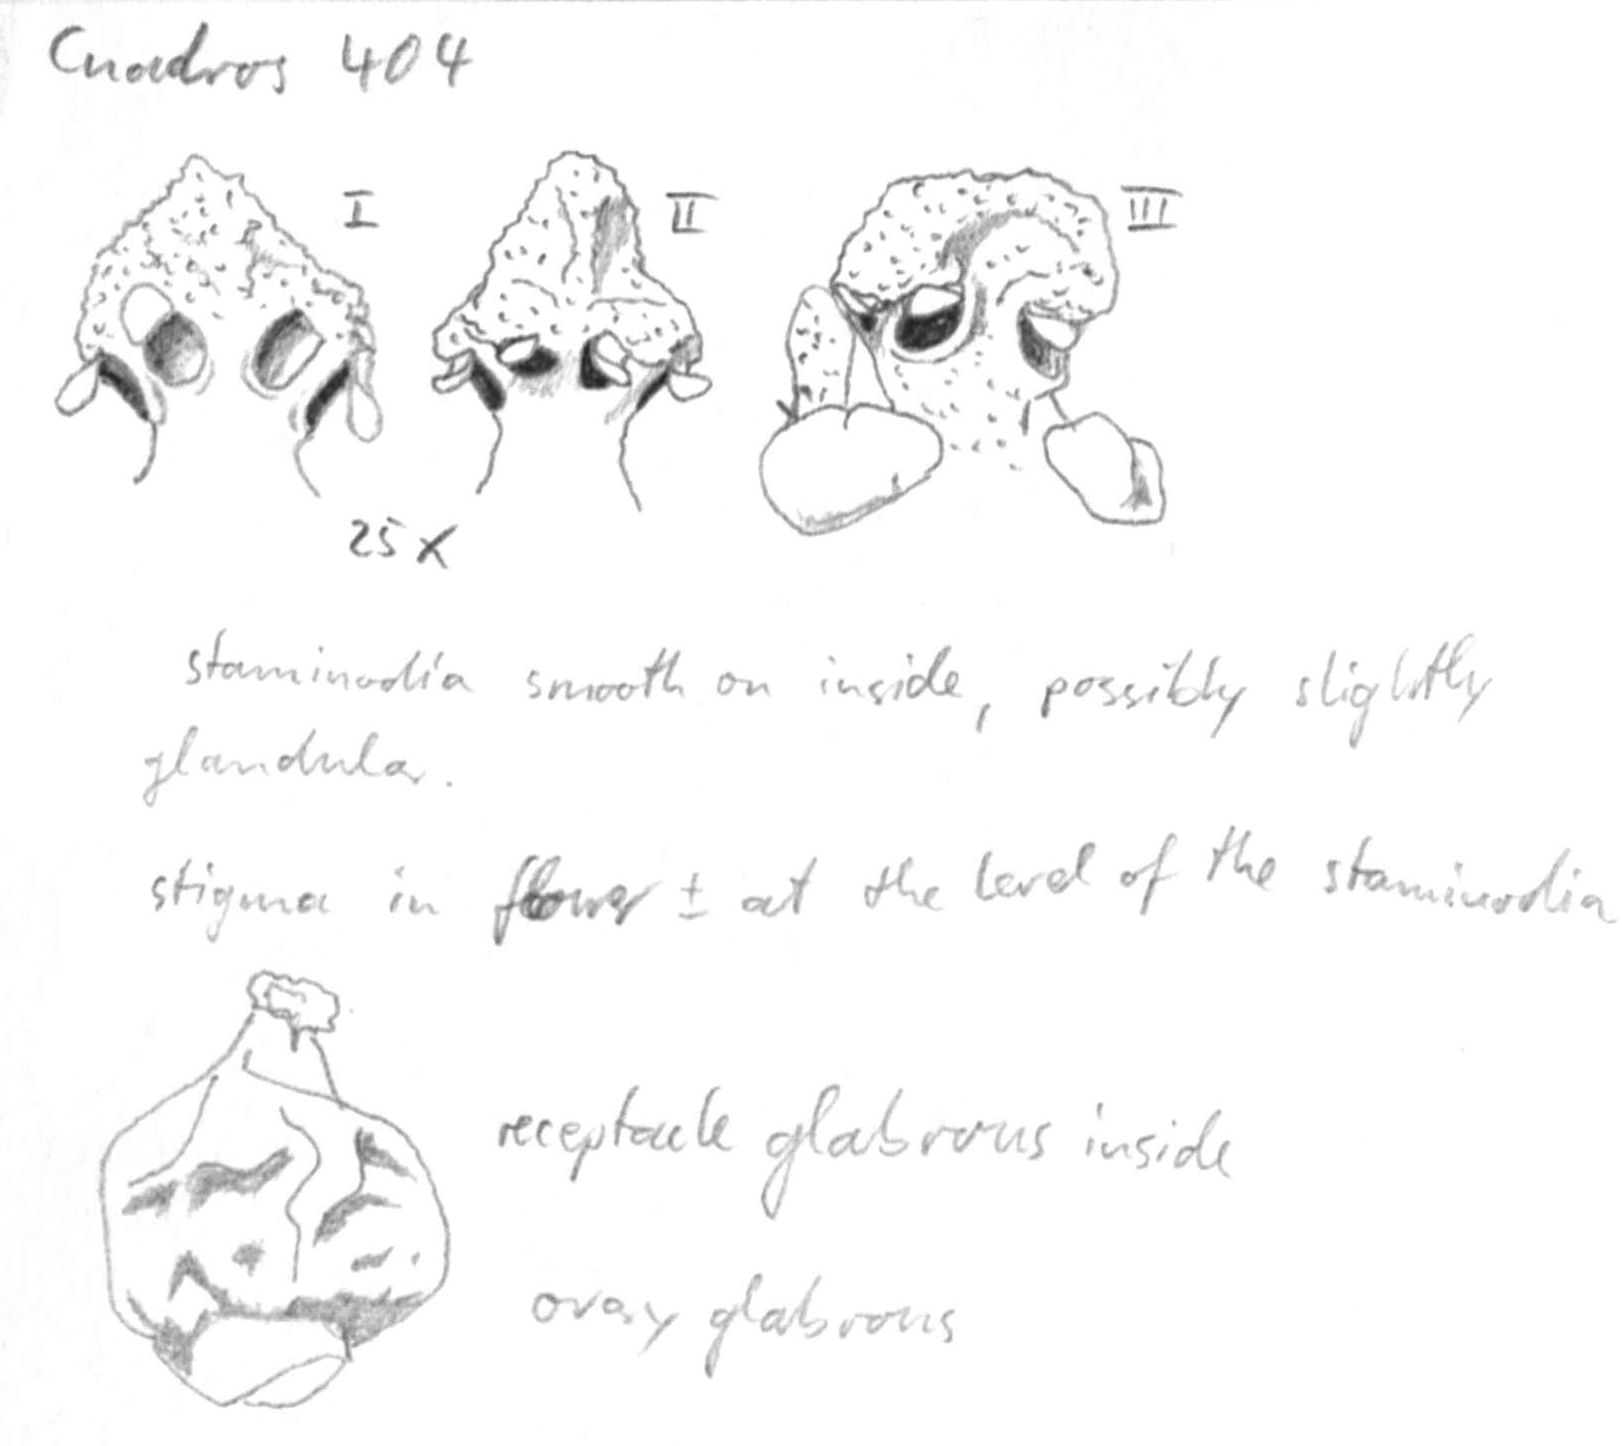 Cuadros 404
I II III
25 x
staminodia smooth on inside, possibly slightly
glandular.
stigma in flower ± at the level of the staminodia
receptacle glabrous inside
ovary glabrous